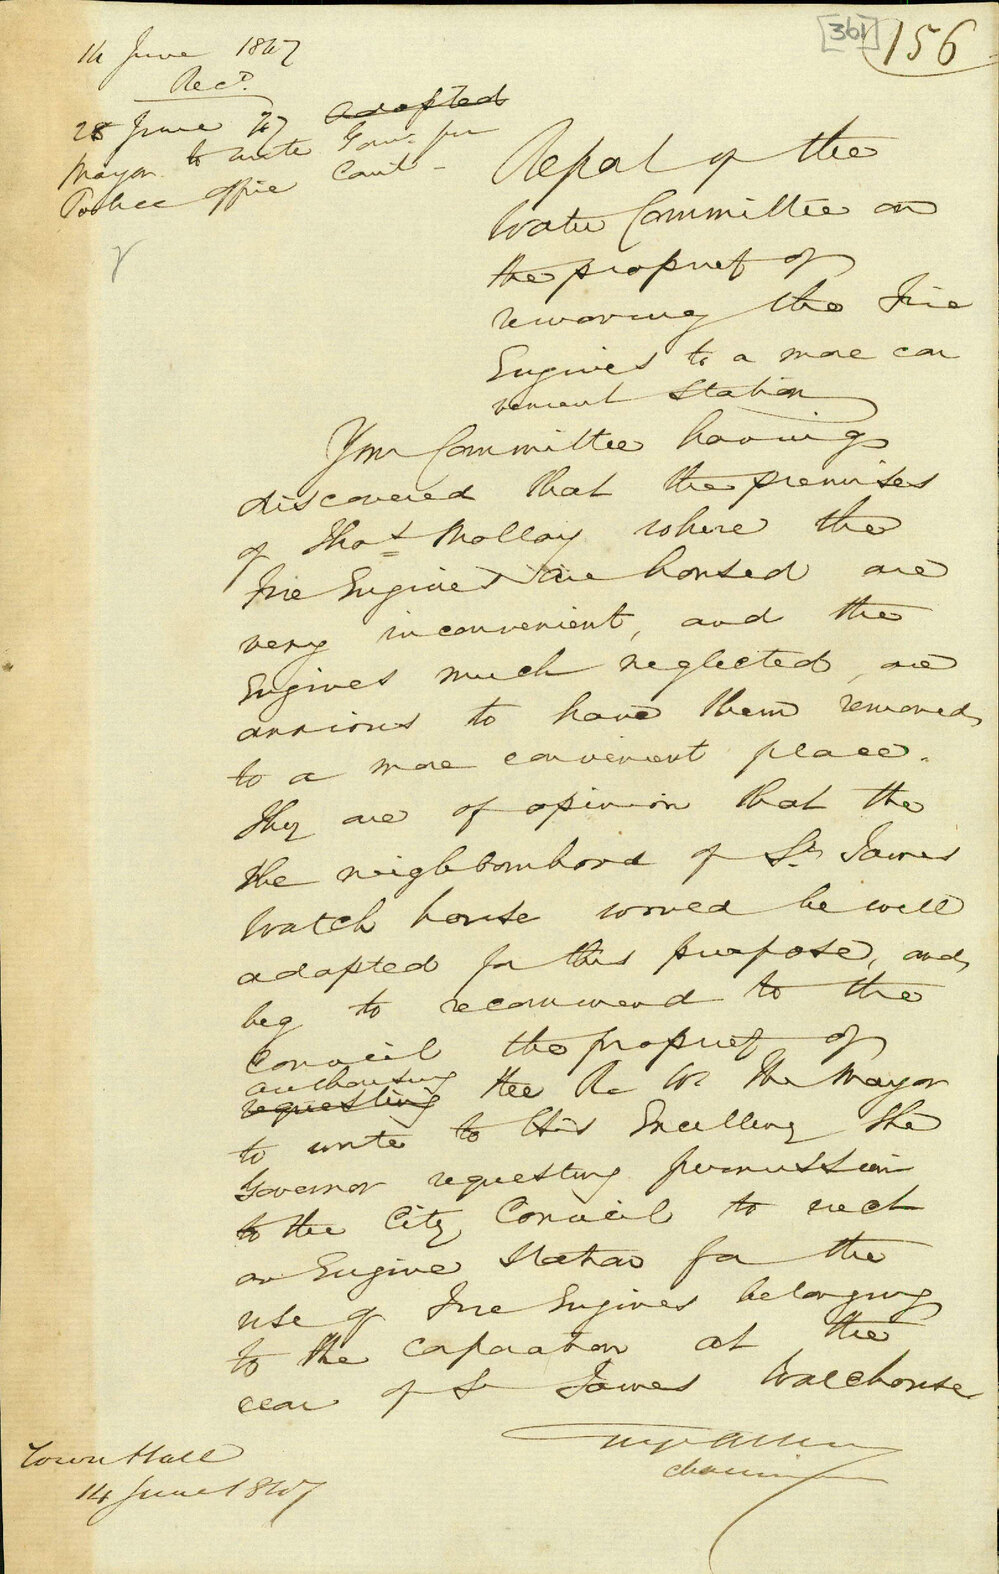 [361] 156
14 June 1847
Recd.
28 June 47 adopted
Mayor to write Govr. for
Police Office
Report of the
Water Committee on
the propriety of
removing the Fire
Engines to a more con
venient Station
Your Committee having
discovered that the premises
of Thos. Molloy where the
Fire Engines are housed are
very inconvenient, and the
Engines much neglected, are
anxious to have them removed
to a more convenient place.
They are of opinion that the
the neighbourhood of St. James
Watch house would be well
adapted for this purpose, and
beg to recommend to the
Council the propriety of
authorising
requesting the R. W. The Mayor
to write to His Excellency The
Governor requesting permission
to the City Council to erect
an Engine Station for the
use of Fire Engines belonging
to the Corporation at the
rear of St James Watchouse
Chairman
Town Hall
14 June 1847